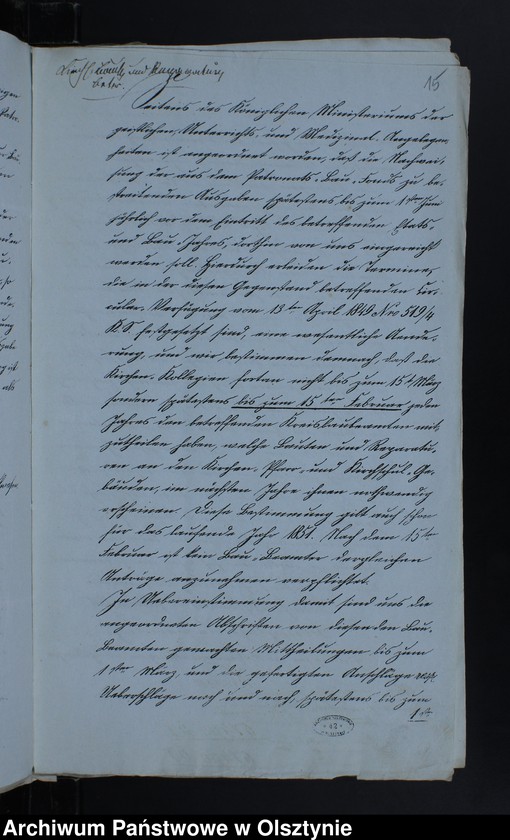 15
Kirchl. Bauten und Reparaturen
betr.
Seitens des Königlichen Ministeriums der
geistlichen, Unterrichts- und Medizinal-Angelegen-
heiten ist angeordnet worden, daß die Nachwei-
sung der aus dem Patronats-Bau-Fonds zu be-
streitenden Ausgaben spätestens bis zum 1ten Juni
jährlich vor dem Eintritt des betreffenden Etats-
und Bau-Jahres, dorthin von uns eingereicht
werden soll. Hierdurch erleiden die Termine,
die in der diesen Gegenstand betreffenden Cir-
cular-Verfügung vom 13ten April 1840 No 519/4
K.S. festgesetzt sind, eine wesentliche Aende-
rung, und wir bestimmen demnach, daß die
Kirchen-Kollegien fortan nicht bis zum 15t März
sondern spätestens bis zum 15ten Februar jeden
Jahres den betreffenden Kreisbaubeamten mit-
zutheilen haben, welche Bauten und Reparatu-
ren an den Kirchen-, Pfarr- und Kirchschul-Ge-
bäuden, im nächsten Jahre ihnen nothwendig
erscheinen. Diese Bestimmung gilt auch schon
für das laufende Jahr 1851. Nach dem 15ten
Februar ist kein Bau-Beamter dergleichen
Anträge anzunehmen verpflichtet.
In Uebereinstimmung damit sind uns die
angeordneten Abschriften von diesen den Bau-
Beamten gemachten Mittheilungen bis zum
1ten März und die gefertigten Anschläge resp.
Ueberschläge nach und nach, spätestens bis zum
1ten
Archiwum Państwowe w Olsztynie